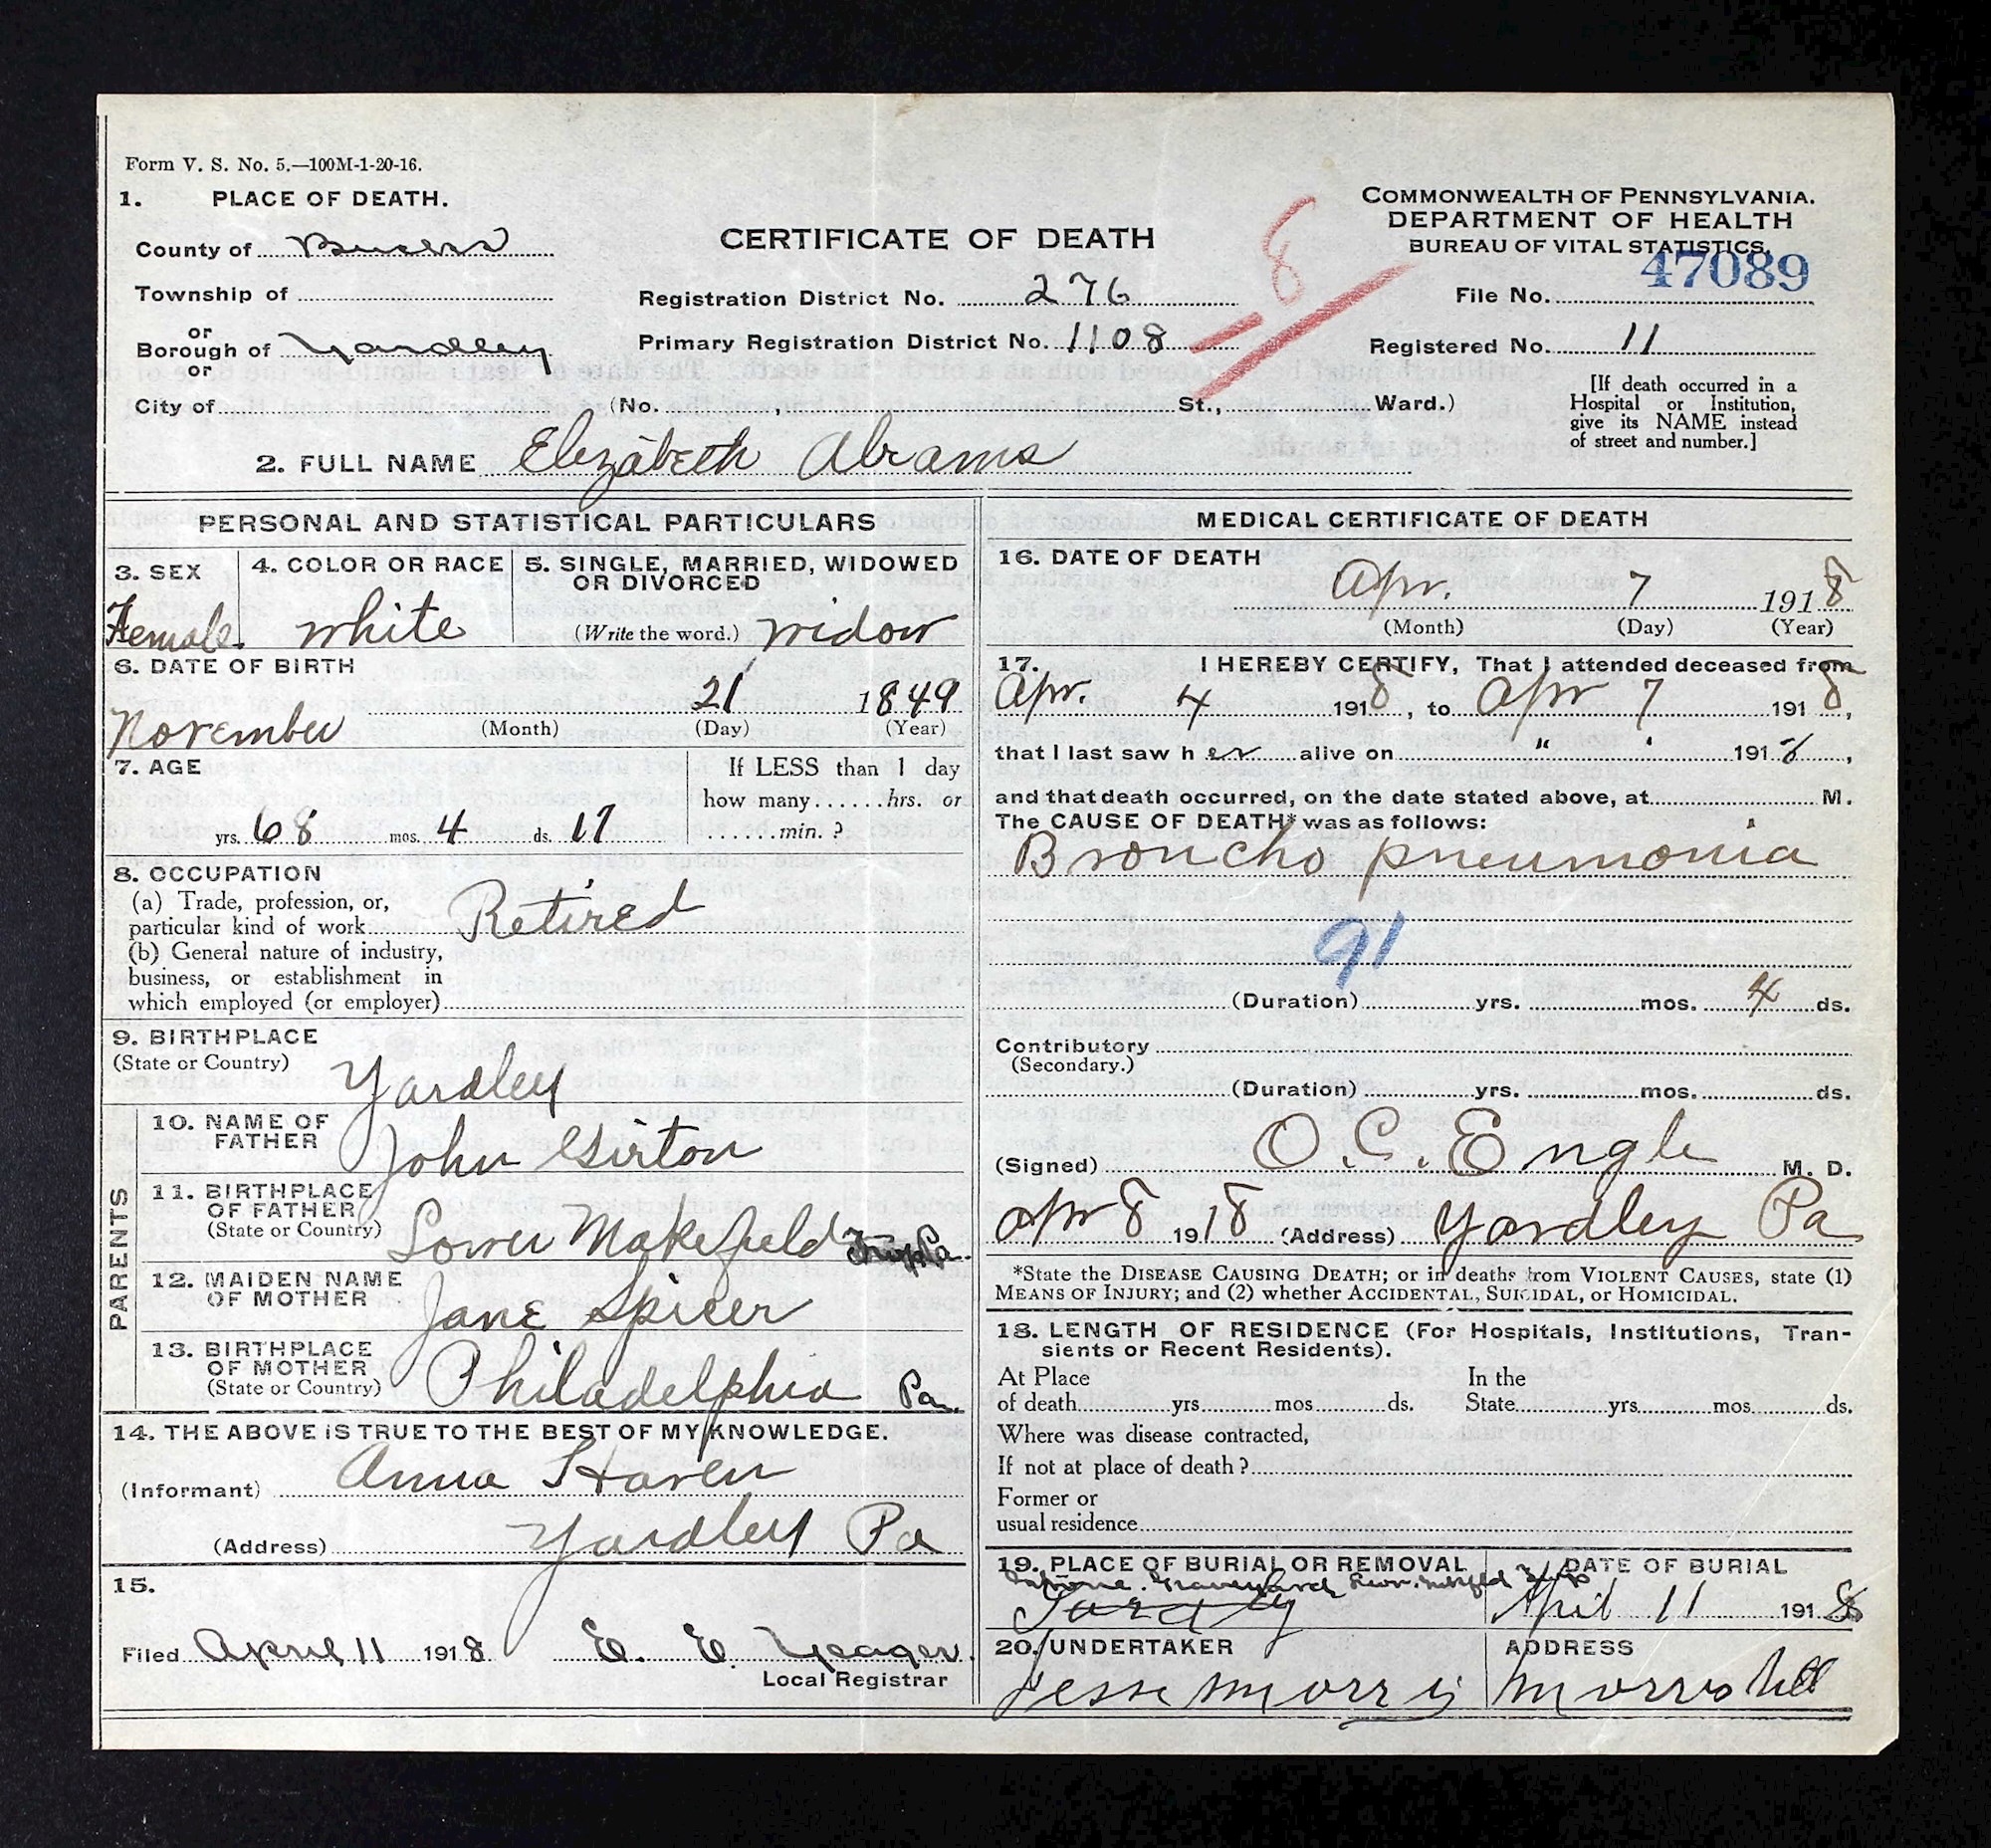 Form V. S. No. 5.—100M-1-20-16.
1. PLACE OF DEATH.
County of Bucks
Township of
or
Borough of Yardley
or
City of
CERTIFICATE OF DEATH
Registration District No. 276
Primary Registration District No. 1108
(No. , St., Ward.)
8
COMMONWEALTH OF PENNSYLVANIA.
DEPARTMENT OF HEALTH
BUREAU OF VITAL STATISTICS.
47089
File No.
Registered No. 11
[If death occurred in a
Hospital or Institution,
give its NAME instead
of street and number.]
2. FULL NAME Elizabeth Abrams
PERSONAL AND STATISTICAL PARTICULARS
3. SEX
Female
4. COLOR OR RACE
White
5. SINGLE, MARRIED, WIDOWED
OR DIVORCED
(Write the word.) Widow
6. DATE OF BIRTH
November 21 1849
(Month) (Day) (Year)
7. AGE
yrs. 68 mos. 4 ds. 17
If LESS than 1 day
how many......hrs. or
......min. ?
8. OCCUPATION
(a) Trade, profession, or,
particular kind of work Retired
(b) General nature of industry,
business, or establishment in
which employed (or employer)
9. BIRTHPLACE
(State or Country) Yardley
PARENTS
10. NAME OF
FATHER John Girton
11. BIRTHPLACE
OF FATHER
(State or Country) Lower Makefield Pa.
12. MAIDEN NAME
OF MOTHER Jane Spicer
13. BIRTHPLACE
OF MOTHER
(State or Country) Philadelphia Pa.
14. THE ABOVE IS TRUE TO THE BEST OF MY KNOWLEDGE.
(Informant) Anna Haven
(Address) Yardley Pa
15.
Filed April 11 1918 E. E. Yeager
Local Registrar
MEDICAL CERTIFICATE OF DEATH
16. DATE OF DEATH
Apr. 7 1918
(Month) (Day) (Year)
17. I HEREBY CERTIFY, That I attended deceased from
Apr. 4 1918, to Apr 7 1918,
that I last saw her alive on " ' 1918,
and that death occurred, on the date stated above, at M.
The CAUSE OF DEATH* was as follows:
Broncho pneumonia
91
(Duration) yrs. mos. 4 ds.
Contributory
(Secondary.)
(Duration) yrs. mos. ds.
(Signed) O. C. Engle M. D.
Apr 8 1918 (Address) Yardley Pa
*State the DISEASE CAUSING DEATH; or in deaths from VIOLENT CAUSES, state (1)
MEANS OF INJURY; and (2) whether ACCIDENTAL, SUICIDAL, or HOMICIDAL.
18. LENGTH OF RESIDENCE (For Hospitals, Institutions, Tran-
sients or Recent Residents).
At Place In the
of death yrs mos ds. State yrs mos ds.
Where was disease contracted,
If not at place of death ?
Former or
usual residence
19. PLACE OF BURIAL OR REMOVAL
Graveyard
Yardly
DATE OF BURIAL
April 11 1918
20. UNDERTAKER
Jesse Morris
ADDRESS